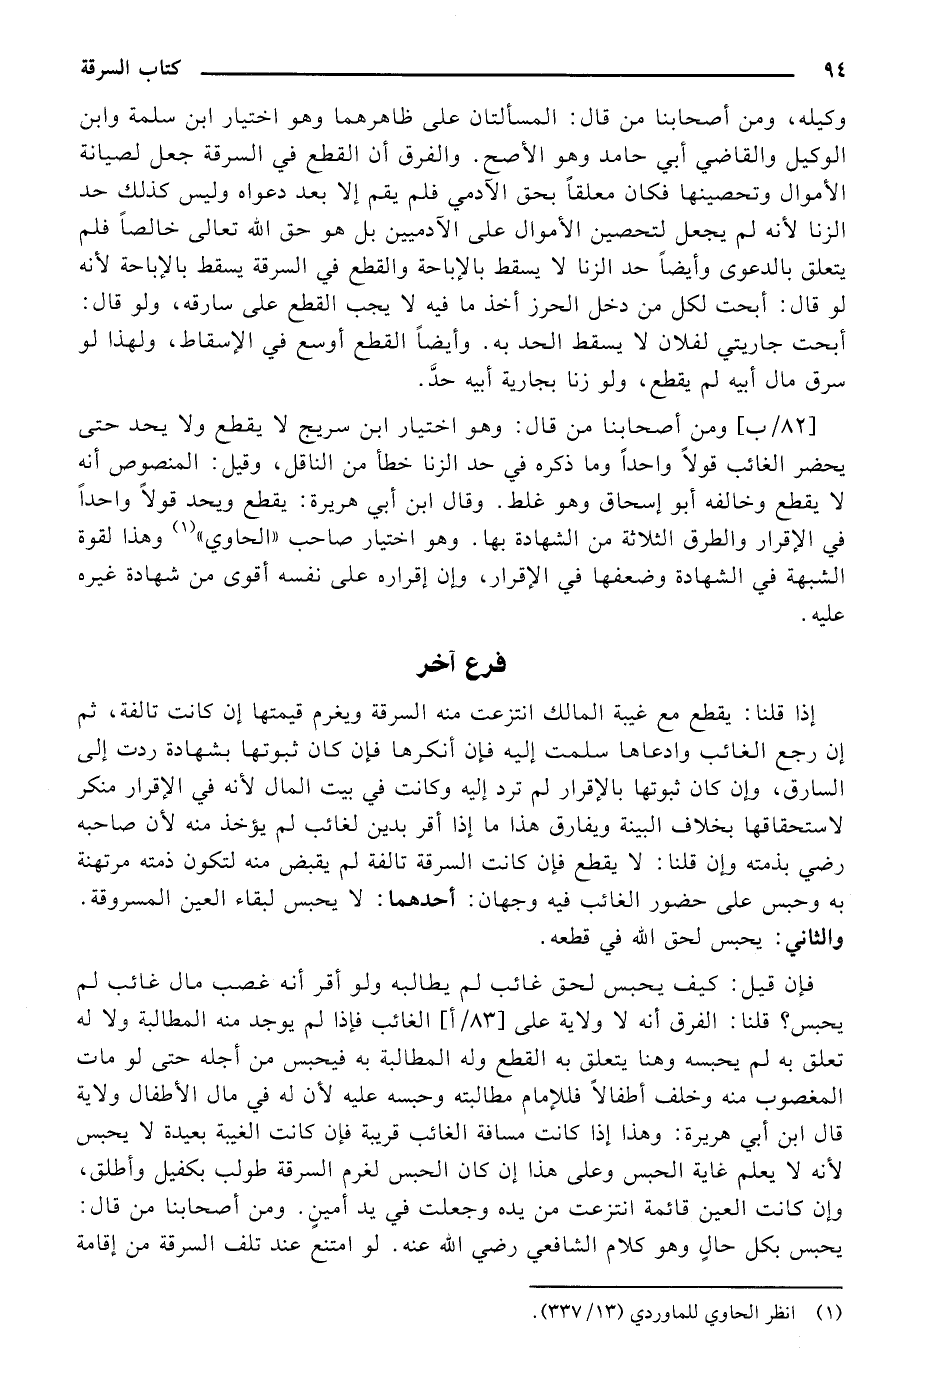 ٩٤ كتاب السرقة
وكيله، ومن أصحابنا من قال: المسألتان على ظاهرهما وهو اختيار ابن سلمة وابن
الوكيل والقاضي أبي حامد وهو الأصح. والفرق أن القطع في السرقة جعل لصيانة
الأموال وتحصينها فكان معلقاً بحق الآدمي فلم يقم إلا بعد دعواه وليس كذلك حد
الزنا لأنه لم يجعل لتحصين الأموال على الآدميين بل هو حق الله تعالى خالصاً فلم
يتعلق بالدعوى وأيضاً حد الزنا لا يسقط بالإباحة والقطع في السرقة يسقط بالإباحة لأنه
لو قال: أبحت لكل من دخل الحرز أخذ ما فيه لا يجب القطع على سارقه، ولو قال:
أبحت جاريتي لفلان لا يسقط الحد به. وأيضاً القطع أوسع في الإسقاط، ولهذا لو
سرق مال أبيه لم يقطع، ولو زنا بجارية أبيه حدَّ.
[٨٢/ب] ومن أصحابنا من قال: وهو اختيار ابن سريج لا يقطع ولا يحد حتى
يحضر الغائب قولاً واحداً وما ذكره في حد الزنا خطأ من الناقل، وقيل: المنصوص أنه
لا يقطع وخالفه أبو إسحاق وهو غلط. وقال ابن أبي هريرة: يقطع ويحد قولاً واحداً
في الإقرار والطرق الثلاثة من الشهادة بها. وهو اختيار صاحب «الحاوي»(١) وهذا لقوة
الشبهة في الشهادة وضعفها في الإقرار، وإن إقراره على نفسه أقوى من شهادة غيره
عليه.
فرع آخر
إذا قلنا: يقطع مع غيبة المالك انتزعت منه السرقة ويغرم قيمتها إن كانت تالفة، ثم
إن رجع الغائب وادعاها سلمت إليه فإن أنكرها فإن كان ثبوتها بشهادة ردت إلى
السارق، وإن كان ثبوتها بالإقرار لم ترد إليه وكانت في بيت المال لأنه في الإقرار منكر
لاستحقاقها بخلاف البينة ويفارق هذا ما إذا أقر بدين لغائب لم يؤخذ منه لأن صاحبه
رضي بذمته وإن قلنا: لا يقطع فإن كانت السرقة تالفة لم يقبض منه لتكون ذمته مرتهنة
به وحبس على حضور الغائب فيه وجهان: أحدهما: لا يحبس لبقاء العين المسروقة.
والثاني: يحبس لحق الله في قطعه.
فإن قيل: كيف يحبس لحق غائب لم يطالبه ولو أقر أنه غصب مال غائب لم
يحبس؟ قلنا: الفرق أنه لا ولاية على [٨٣/أ] الغائب فإذا لم يوجد منه المطالبة ولا له
تعلق به لم يحبسه وهنا يتعلق به القطع وله المطالبة به فيحبس من أجله حتى لو مات
المغصوب منه وخلف أطفالاً فللإمام مطالبته وحبسه عليه لأن له في مال الأطفال ولاية
قال ابن أبي هريرة: وهذا إذا كانت مسافة الغائب قريبة فإن كانت الغيبة بعيدة لا يحبس
لأنه لا يعلم غاية الحبس وعلى هذا إن كان الحبس لغرم السرقة طولب بكفيل وأطلق،
وإن كانت العين قائمة انتزعت من يده وجعلت في يد أمينٍ. ومن أصحابنا من قال:
يحبس بكل حالٍ وهو كلام الشافعي رضي الله عنه. لو امتنع عند تلف السرقة من إقامة
(١) انظر الحاوي للماوردي (١٣/ ٣٣٧).